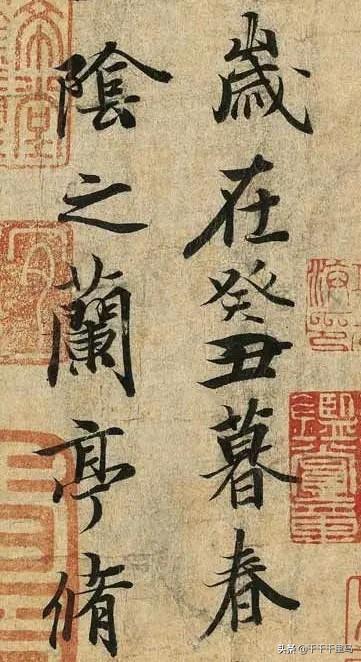 歲在癸丑暮春
陰之蘭亭脩
头条 @千千千里马